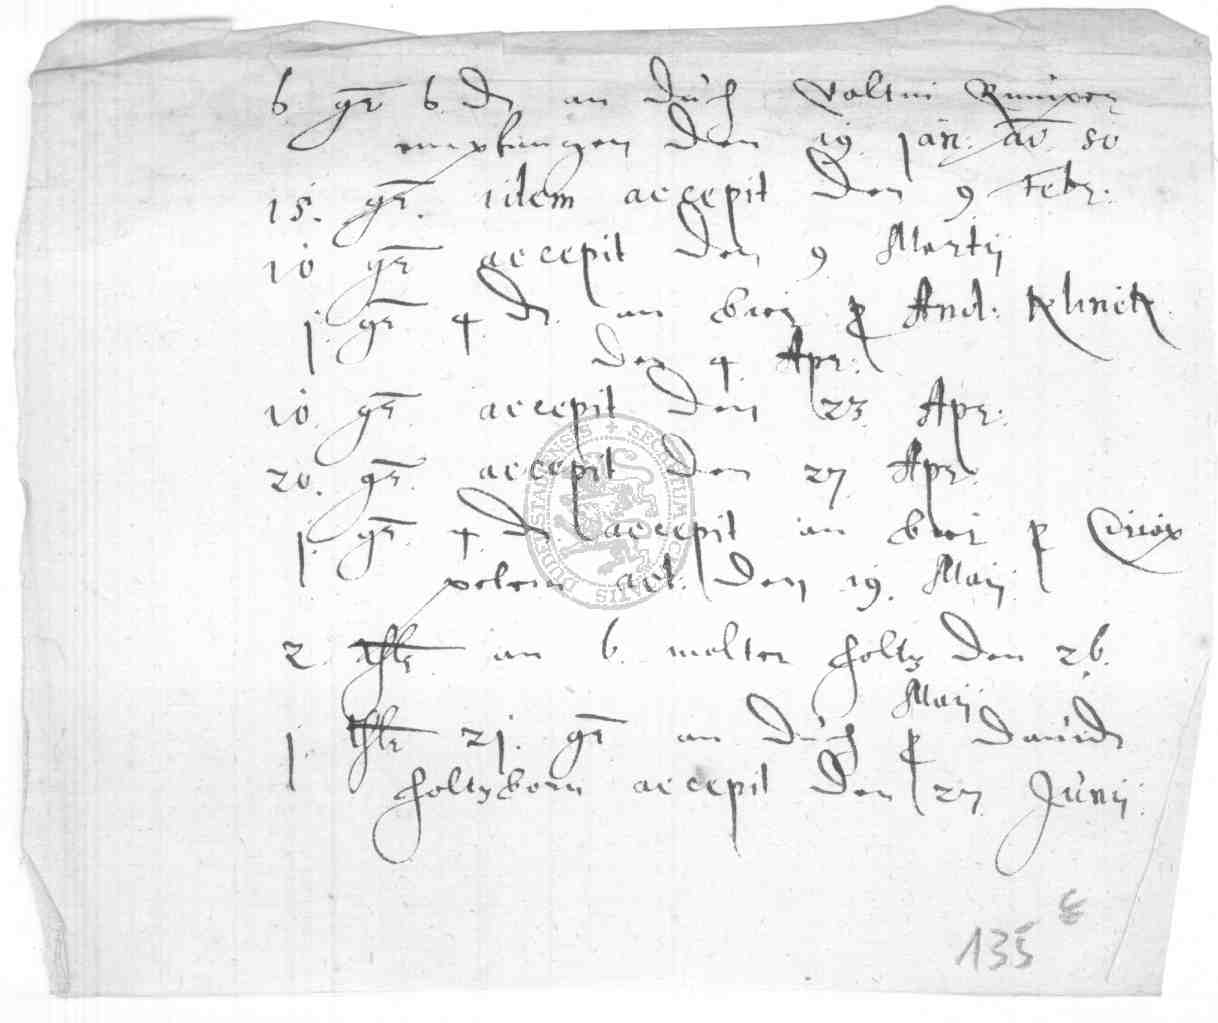 6. gr 6. d an duch Valtin
empfangen den 19 Jan: ao 80
15. gr. idem accepit den 9 Febr:
10 gr accepit den 9 Martij
j. gr. 4. d. an bier p And: Klinck
den 4. Apr:
10. gr accepit den 23. Apr:
20. gr. accepit den 27 Apr.
j. gr. 4. d accepit an bier p
act: den 19. Maij
2. thlr an 6. malter holtz den 26.
Maij
j. thlr 2j. gr an duch p Dauidt
Holtzborn accepit den 27 Junij.
135
SECRETUM CIVITATIS DUDERSTADENSIS